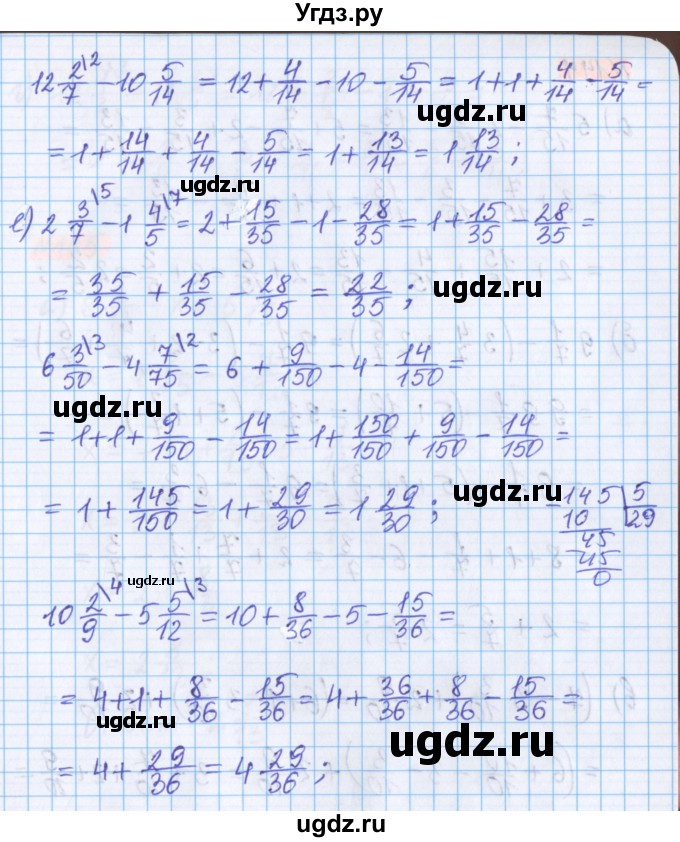 Угдз.ру
12 2/7\2 − 10 5/14 = 12 + 4/14 − 10 − 5/14 = 1 + 1 + 4/14 − 5/14 =
ugdz.ru
= 1 + 14/14 + 4/14 − 5/14 = 1 + 13/14 = 1 13/14 ;
ugdz.ru
ugdz.ru
е) 2 3/7\5 − 1 4/5\7 = 2 + 15/35 − 1 − 28/35 = 1 + 15/35 − 28/35 =
= 35/35 + 15/35 − 28/35 = 22/35 ;
ugdz.ru
6 3/50\3 − 4 7/75\2 = 6 + 9/150 − 4 − 14/150 =
ugdz.ru
= 1 + 1 + 9/150 − 14/150 = 1 + 150/150 + 9/150 − 14/150 =
ugdz.ru
= 1 + 145/150 = 1 + 29/30 = 1 29/30 ; − 145 5
10 29
45
45
0
ugdz.ru
10 2/9\4 − 5 5/12\3 = 10 + 8/36 − 5 − 15/36 =
= 4 + 1 + 8/36 − 15/36 = 4 + 36/36 + 8/36 − 15/36 =
ugdz.ru
ugdz.ru
= 4 + 29/36 = 4 29/36 ;
ugdz.ru